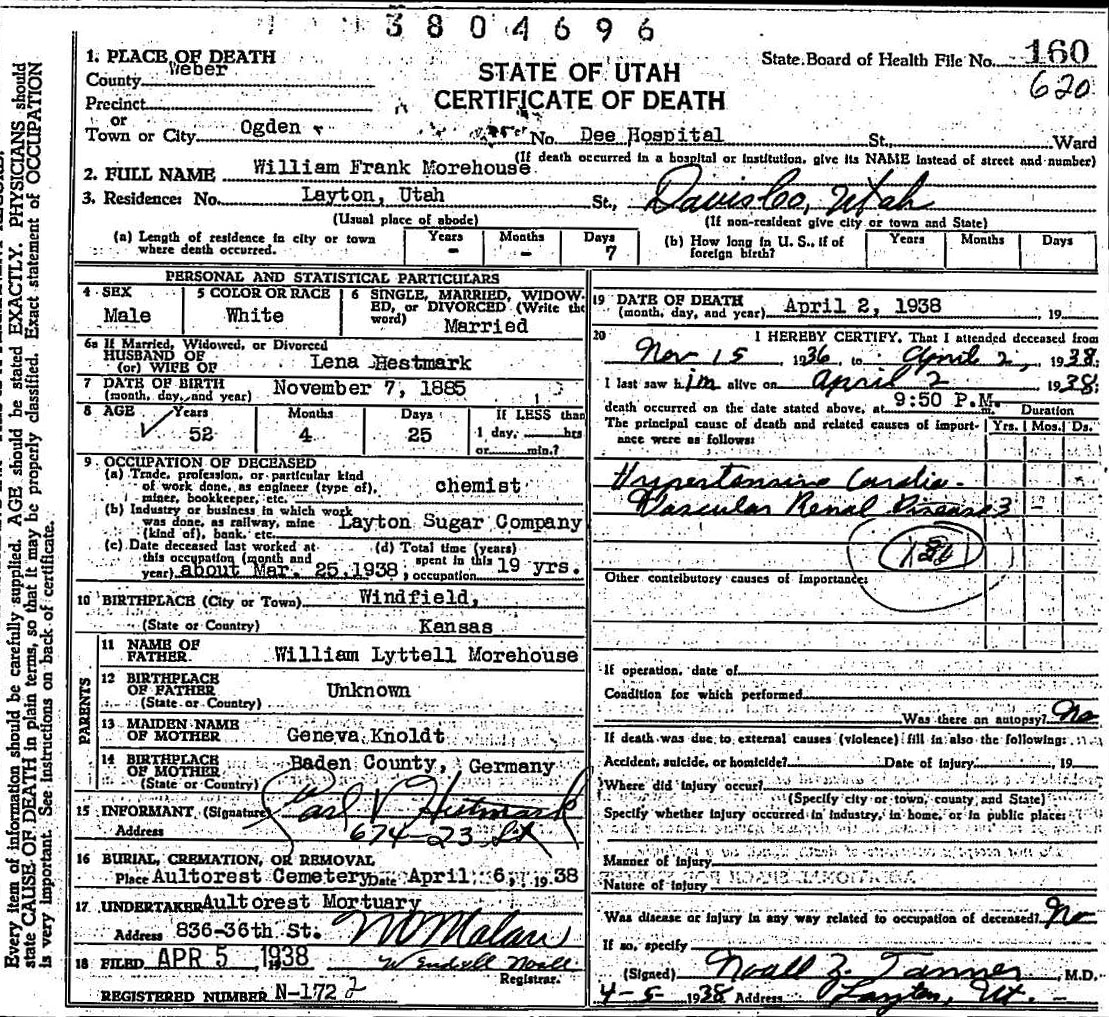 3804696
State Board of Health File No. 160
620
STATE OF UTAH
CERTIFICATE OF DEATH
1. PLACE OF DEATH
County Weber
Precinct
or
Town or City Ogden No. Dee Hospital St. Ward
(If death occurred in a hospital or institution, give its NAME instead of street and number)
2. FULL NAME William Frank Morehouse
3. Residence: No. Layton, Utah St., Davis Co, Utah
(Usual place of abode) (If non-resident give city or town and State)
(a) Length of residence in city or town where death occurred. Years - Months - Days 7
(b) How long in U. S., if of foreign birth? Years Months Days
PERSONAL AND STATISTICAL PARTICULARS
4 SEX Male
5 COLOR OR RACE White
6 SINGLE, MARRIED, WIDOWED, OR DIVORCED (Write the word) Married
6a If Married, Widowed, or Divorced
HUSBAND OF
(or) WIFE OF Lena Hestmark
7 DATE OF BIRTH
(month, day, and year) November 7, 1885
8 AGE Years 52 Months 4 Days 25 If LESS than
1 day, hrs
or min.?
9 OCCUPATION OF DECEASED
(a) Trade, profession, or particular kind
of work done, as engineer (type of),
miner, bookkeeper, etc. chemist
(b) Industry or business in which work
was done, as railway, mine
(kind of), bank, etc. Layton Sugar Company
(c) Date deceased last worked at
this occupation (month and
year) about Mar. 25, 1938
(d) Total time (years)
spent in this
occupation 19 yrs.
10 BIRTHPLACE (City or Town) Windfield,
(State or Country) Kansas
PARENTS
11 NAME OF
FATHER William Lyttell Morehouse
12 BIRTHPLACE
OF FATHER Unknown
(State or Country)
13 MAIDEN NAME
OF MOTHER Geneva Knoldt
14 BIRTHPLACE
OF MOTHER Baden County, Germany
(State or Country)
15 INFORMANT (Signature) Carl V Hestmark
Address 674-23 St
16 BURIAL, CREMATION, OR REMOVAL
Place Aultorest Cemetery Date April 6, 1938
17 UNDERTAKER Aultorest Mortuary
Address 836-36th St. Malan
18 FILED APR 5 1938 Wendell Noall
Registrar.
REGISTERED NUMBER N-172 2
19 DATE OF DEATH
(month, day, and year) April 2, 1938, 19
20 I HEREBY CERTIFY, That I attended deceased from
Nov 15 1936 to April 2, 1938
I last saw him alive on April 2 1938
death occurred on the date stated above, at 9:50 P.M. m. Duration
The principal cause of death and related causes of importance were as follows: Yrs. Mos. Ds.
Hypertensive Cardio-
Vascular Renal Disease 3 -
Other contributory causes of importance:
If operation, date of
Condition for which performed
Was there an autopsy? No
If death was due to external causes (violence) fill in also the following:
Accident, suicide, or homicide? Date of injury , 19
Where did injury occur?
(Specify city or town, county, and State)
Specify whether injury occurred in industry, in home, or in public place:
Manner of injury
Nature of injury
Was disease or injury in any way related to occupation of deceased? No
If so, specify
(Signed) Noall Z. Tanner M.D.
4-5-1938 Address Layton, Ut.
Every item of information should be carefully supplied. AGE should be stated EXACTLY. PHYSICIANS should
state CAUSE OF DEATH in plain terms, so that it may be properly classified. Exact statement of OCCUPATION
is very important. See instructions on back of certificate.